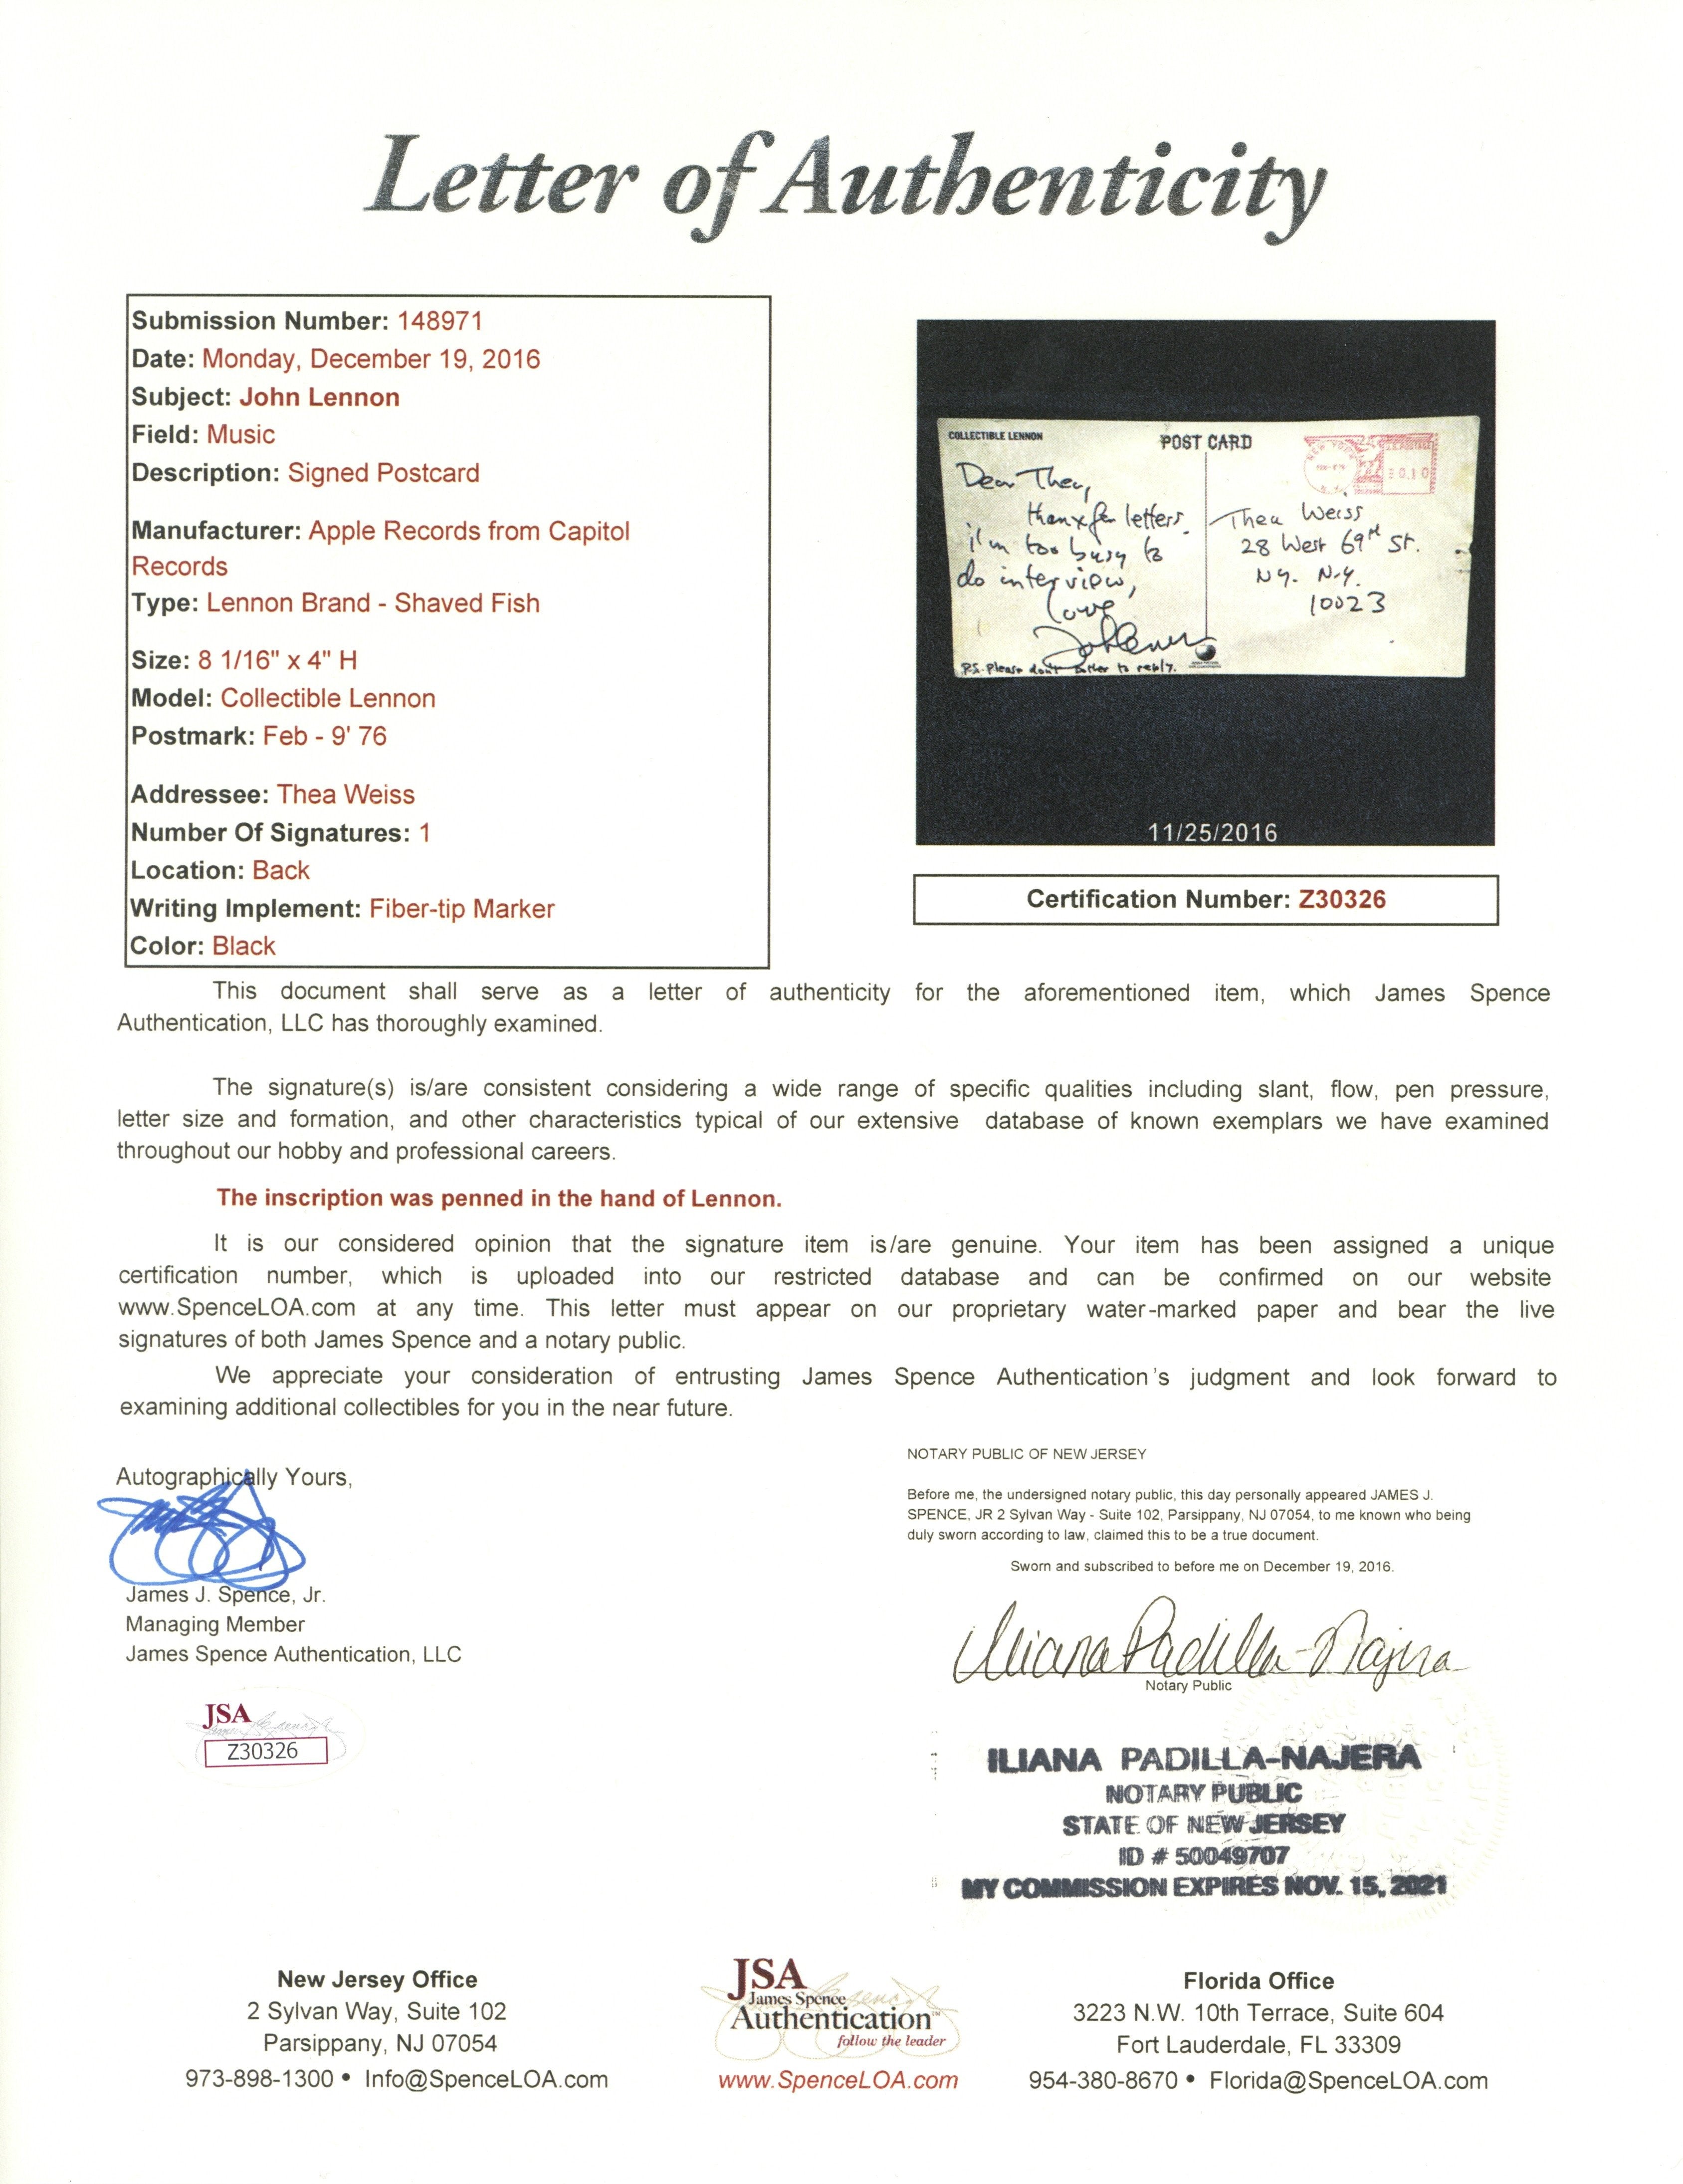 Letter of Authenticity
Submission Number: 148971
Date: Monday, December 19, 2016
Subject: John Lennon
Field: Music
Description: Signed Postcard
Manufacturer: Apple Records from Capitol
Records
Type: Lennon Brand - Shaved Fish
Size: 8 1/16" x 4" H
Model: Collectible Lennon
Postmark: Feb - 9' 76
Addressee: Thea Weiss
Number Of Signatures: 1
Location: Back
Writing Implement: Fiber-tip Marker
Color: Black
COLLECTIBLE LENNON
POST CARD
NEW YORK
N.Y.
0.10
Dear Thea,
thanx for letters.
i'm too busy to
do interview,
love
P.S. Please don't bother to reply.
Thea Weiss
28 West 69th St.
NY. N.Y.
10023
11/25/2016
Certification Number: Z30326
This document shall serve as a letter of authenticity for the aforementioned item, which James Spence
Authentication, LLC has thoroughly examined.
The signature(s) is/are consistent considering a wide range of specific qualities including slant, flow, pen pressure,
letter size and formation, and other characteristics typical of our extensive database of known exemplars we have examined
throughout our hobby and professional careers.
The inscription was penned in the hand of Lennon.
It is our considered opinion that the signature item is/are genuine. Your item has been assigned a unique
certification number, which is uploaded into our restricted database and can be confirmed on our website
www.SpenceLOA.com at any time. This letter must appear on our proprietary water-marked paper and bear the live
signatures of both James Spence and a notary public.
We appreciate your consideration of entrusting James Spence Authentication's judgment and look forward to
examining additional collectibles for you in the near future.
Autographically Yours,
James J. Spence, Jr.
Managing Member
James Spence Authentication, LLC
JSA
Z30326
NOTARY PUBLIC OF NEW JERSEY
Before me, the undersigned notary public, this day personally appeared JAMES J.
SPENCE, JR 2 Sylvan Way - Suite 102, Parsippany, NJ 07054, to me known who being
duly sworn according to law, claimed this to be a true document.
Sworn and subscribed to before me on December 19, 2016.
Iliana Padilla-Najera
Notary Public
ILIANA PADILLA-NAJERA
NOTARY PUBLIC
STATE OF NEW JERSEY
ID # 50049707
MY COMMISSION EXPIRES NOV. 15, 2021
New Jersey Office
2 Sylvan Way, Suite 102
Parsippany, NJ 07054
973-898-1300 • Info@SpenceLOA.com
JSA
James Spence
Authentication™
follow the leader
www.SpenceLOA.com
Florida Office
3223 N.W. 10th Terrace, Suite 604
Fort Lauderdale, FL 33309
954-380-8670 • Florida@SpenceLOA.com